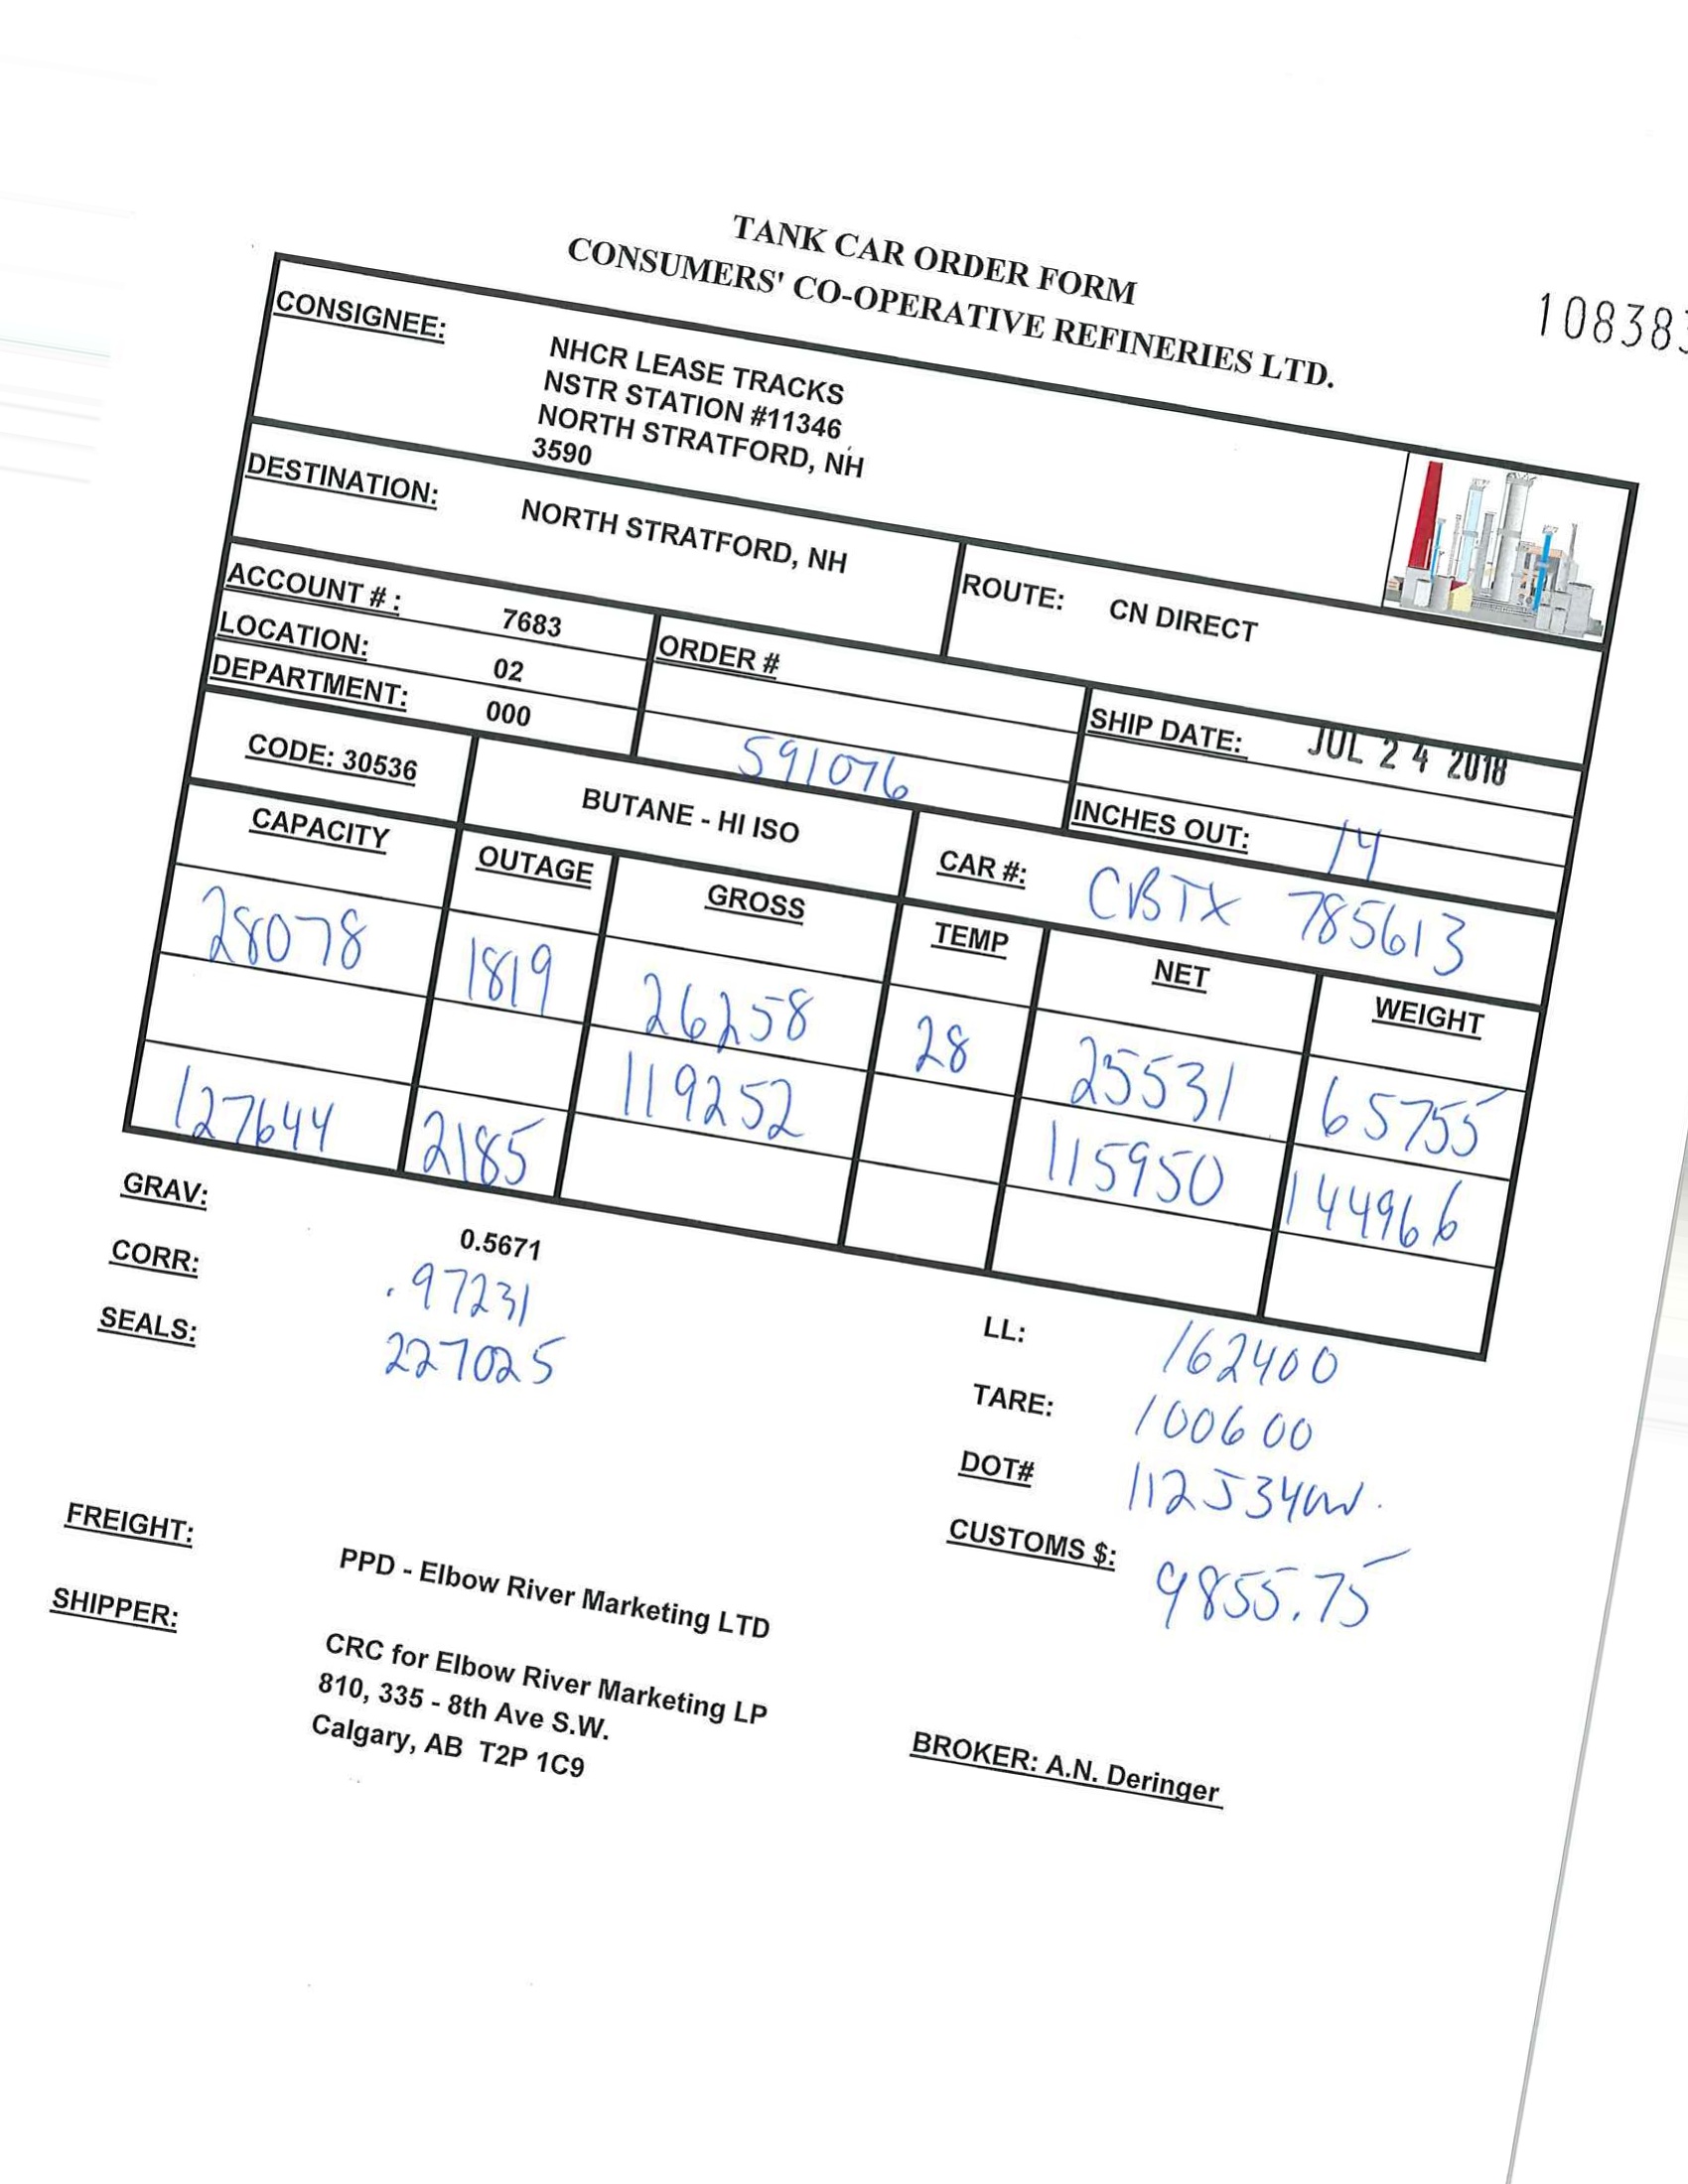 TANK CAR ORDER FORM
CONSUMERS' CO-OPERATIVE REFINERIES LTD.
108383
CONSIGNEE:
NHCR LEASE TRACKS
NSTR STATION #11346
NORTH STRATFORD, NH
3590
DESTINATION: NORTH STRATFORD, NH
ROUTE: CN DIRECT
ACCOUNT # : 7683
LOCATION: 02
DEPARTMENT: 000
ORDER #
591076
SHIP DATE: JUL 24 2018
INCHES OUT: 14
CODE: 30536
BUTANE - HI ISO
CAR #: CBTX 785613
CAPACITY OUTAGE GROSS TEMP NET WEIGHT
28078 1819 26258 28 25531 65755
119252 115950 144966
127644 2185
GRAV: 0.5671
CORR: .97231
SEALS: 227025
LL: 162400
TARE: 100600
DOT# 112J340W.
CUSTOMS $: 9855.75
FREIGHT: PPD - Elbow River Marketing LTD
SHIPPER: CRC for Elbow River Marketing LP
810, 335 - 8th Ave S.W.
Calgary, AB T2P 1C9
BROKER: A.N. Deringer